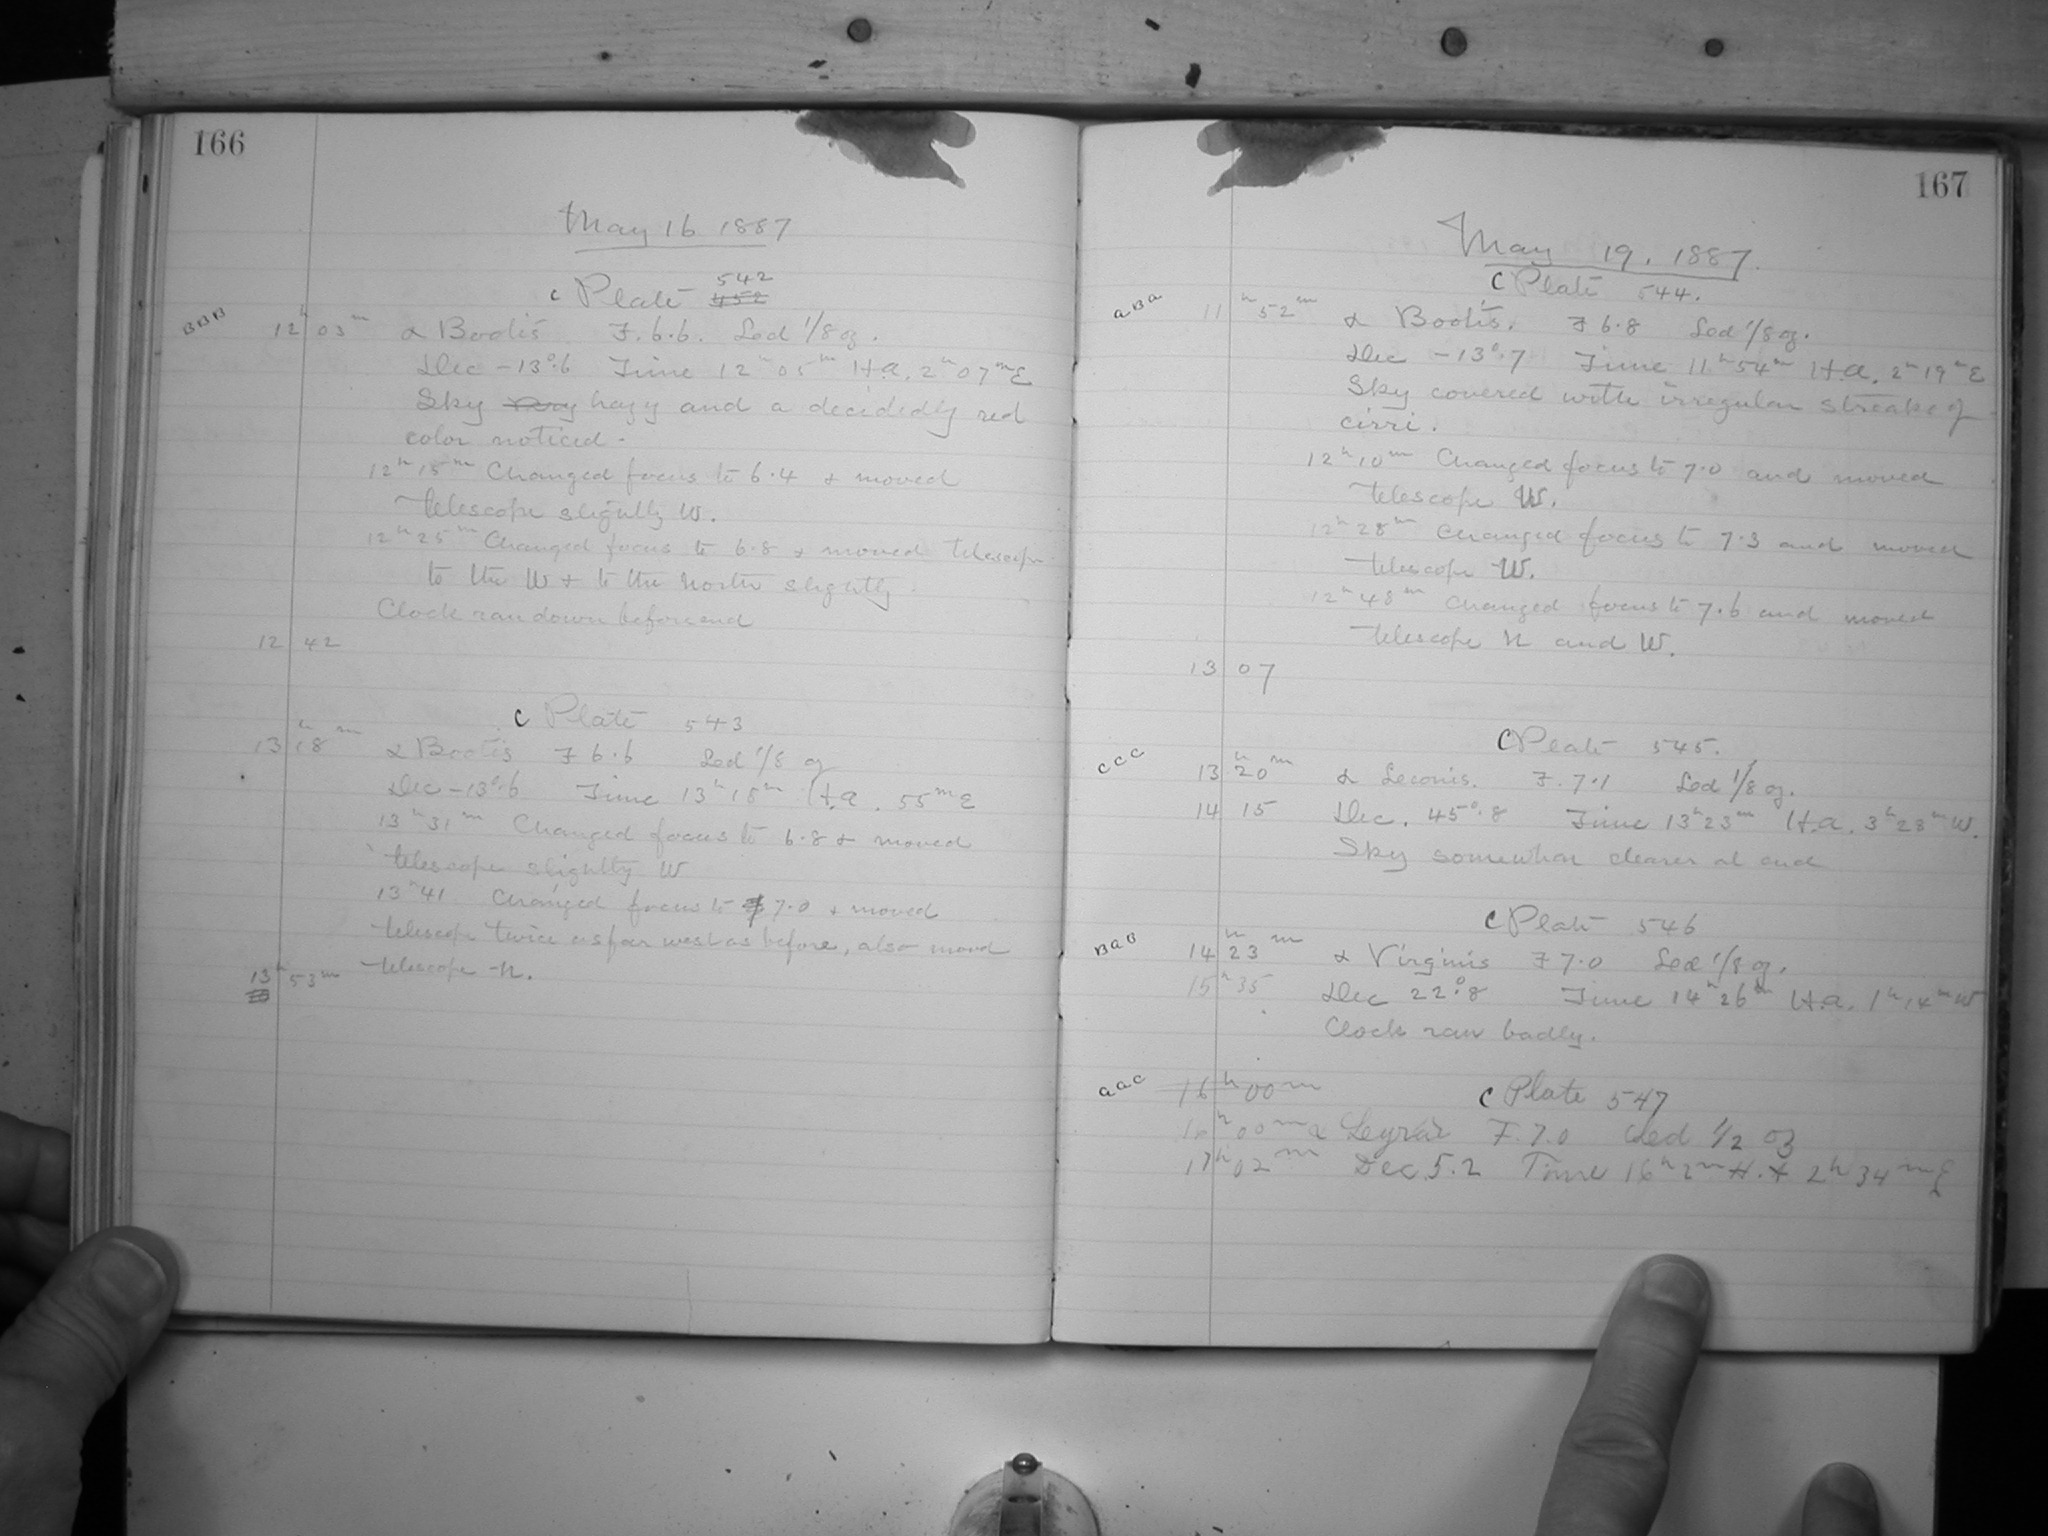 166
May 16 1887
C Plate 542
452
BBB 12h 03m α Bootis F. 6.6. Led 1/8 oz.
Dec -13°.6 Time 12h 05m H.a. 2h 07m E
Sky hazy and a decidedly red
color noticed.
12h 15m Changed focus to 6.4 & moved
telescope slightly W.
12h 25m Changed focus to 6.8 & moved telescope
to the W & to the north slightly
Clock ran down before end
12 42
C Plate 543
13h 18m α Bootis F 6.6 Led 1/8 oz
Dec -13°.6 Time 13h 18m H.a. 55m E
13h 31m Changed focus to 6.8 & moved
telescope slightly W
13h 41 Changed focus to 7.0 & moved
telescope twice as far west as before, also moved
13h 53m telescope N.
167
May 19, 1887.
C Plate 544.
aBa 11h 52m α Bootis. F 6.8 Led 1/8 oz.
Dec -13°.7 Time 11h 54m H.a. 2h 19m E
Sky covered with irregular streaks of
cirri.
12h 10m Changed focus to 7.0 and moved
telescope W.
12h 28m Changed focus to 7.3 and moved
telescope W.
12h 48m Changed focus to 7.6 and moved
telescope N and W.
13 07
C Plate 545.
CCC 13h 20m α Leonis. F. 7.1 Led 1/8 oz.
14 15 Dec. 45°.8 Time 13h 23m H.a. 3h 28m W.
Sky somewhat clearer at end
C Plate 546
BaB 14h 23m α Virginis F 7.0 Led 1/8 oz.
15h 35 Dec 22°.8 Time 14h 26m H.a. 1h 14m W
Clock ran badly.
aac 16h 00m C Plate 547
16h 00m α Leyrae F. 7.0 Led 1/2 oz
17h 02m Dec 5.2 Time 16h 2m H.A 2h 34m E